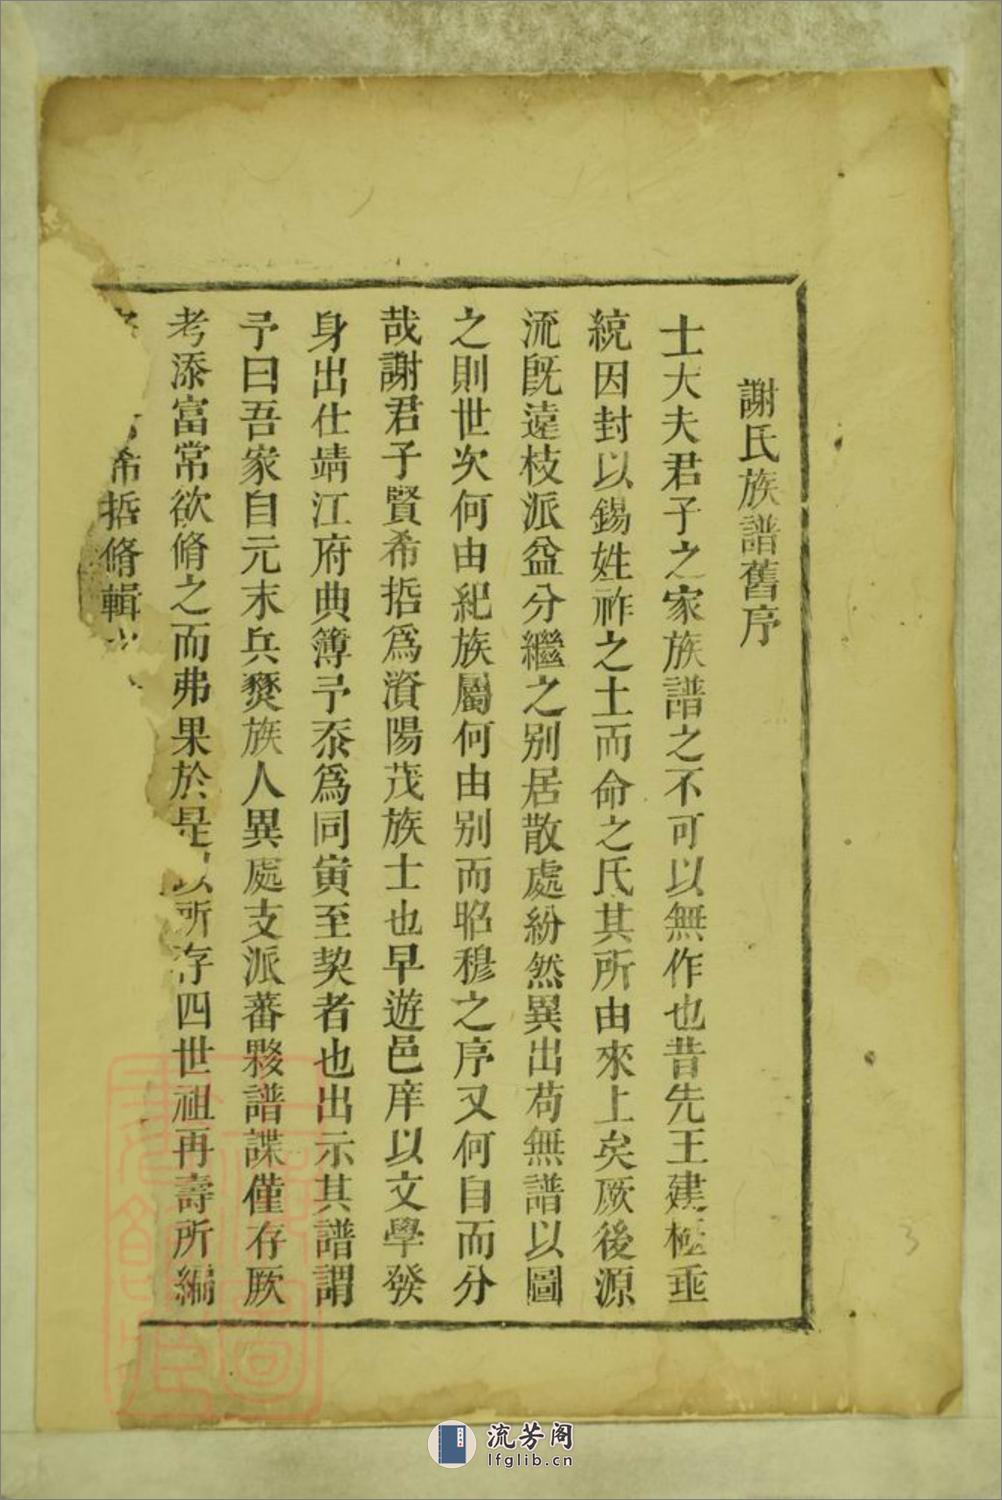 謝氏族譜舊序
士大夫君子之家族譜之不可以無作也昔先王建極垂
統因封以錫姓祚之土而命之氏其所由來上矣厥後源
流旣遠枝派益分繼之别居散處紛然異出苟無譜以圖
之則世次何由紀族屬何由别而昭穆之序又何自而分
哉謝君子賢希哲爲濱陽茂族士也早遊邑庠以文學發
身出仕靖江府典簿予忝爲同寅至契者也出示其譜謂
予曰吾家自元末兵燹族人異處支派蕃夥譜諜僅存厥
考添富常欲脩之而弗果於是以所存四世祖再壽所編
希哲脩輯
3
流芳阁
lfglib.cn